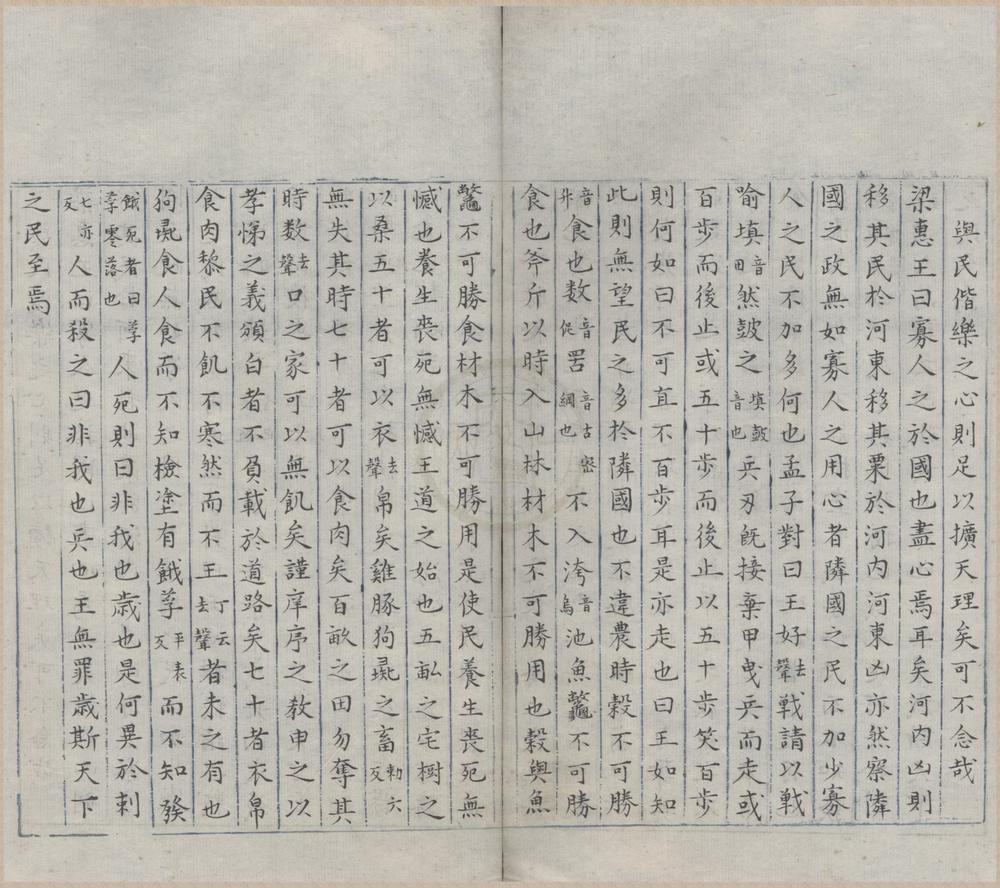 與民偕樂之心則足以擴天理矣可不念哉
梁惠王曰寡人之於國也盡心焉耳矣河內凶則
移其民於河東移其粟於河內河東凶亦然察隣
國之政無如寡人之用心者隣國之民不加少寡
人之民不加多何也孟子對曰王好去聲戰請以戰
喻填音田然皷之填皷音也兵刃既接棄甲曳兵而走或
百步而後止或五十步而後止以五十步笑百步
則何如曰不可直不百步耳是亦走也曰王如知
此則無望民之多於隣國也不違農時穀不可勝
音升食也数音促罟音古密網也不入洿音烏池魚鼈不可勝
食也斧斤以時入山林材木不可勝用也穀與魚
鼈不可勝食材木不可勝用是使民養生喪死無
憾也養生喪死無憾王道之始也五畝之宅樹之
以桑五十者可以衣去聲帛矣雞豚狗彘之畜勑六反
無失其時七十者可以食肉矣百畝之田勿奪其
時数去聲口之家可以無飢矣謹庠序之教申之以
孝悌之義頒白者不負載於道路矣七十者衣帛
食肉黎民不飢不寒然而不王丁云去聲者未之有也
狗彘食人食而不知檢塗有餓莩平表反而不知發
餓死者曰莩莩零落也人死則曰非我也歲也是何異於刺
七亦反人而殺之曰非我也兵也王無罪歲斯天下
之民至焉